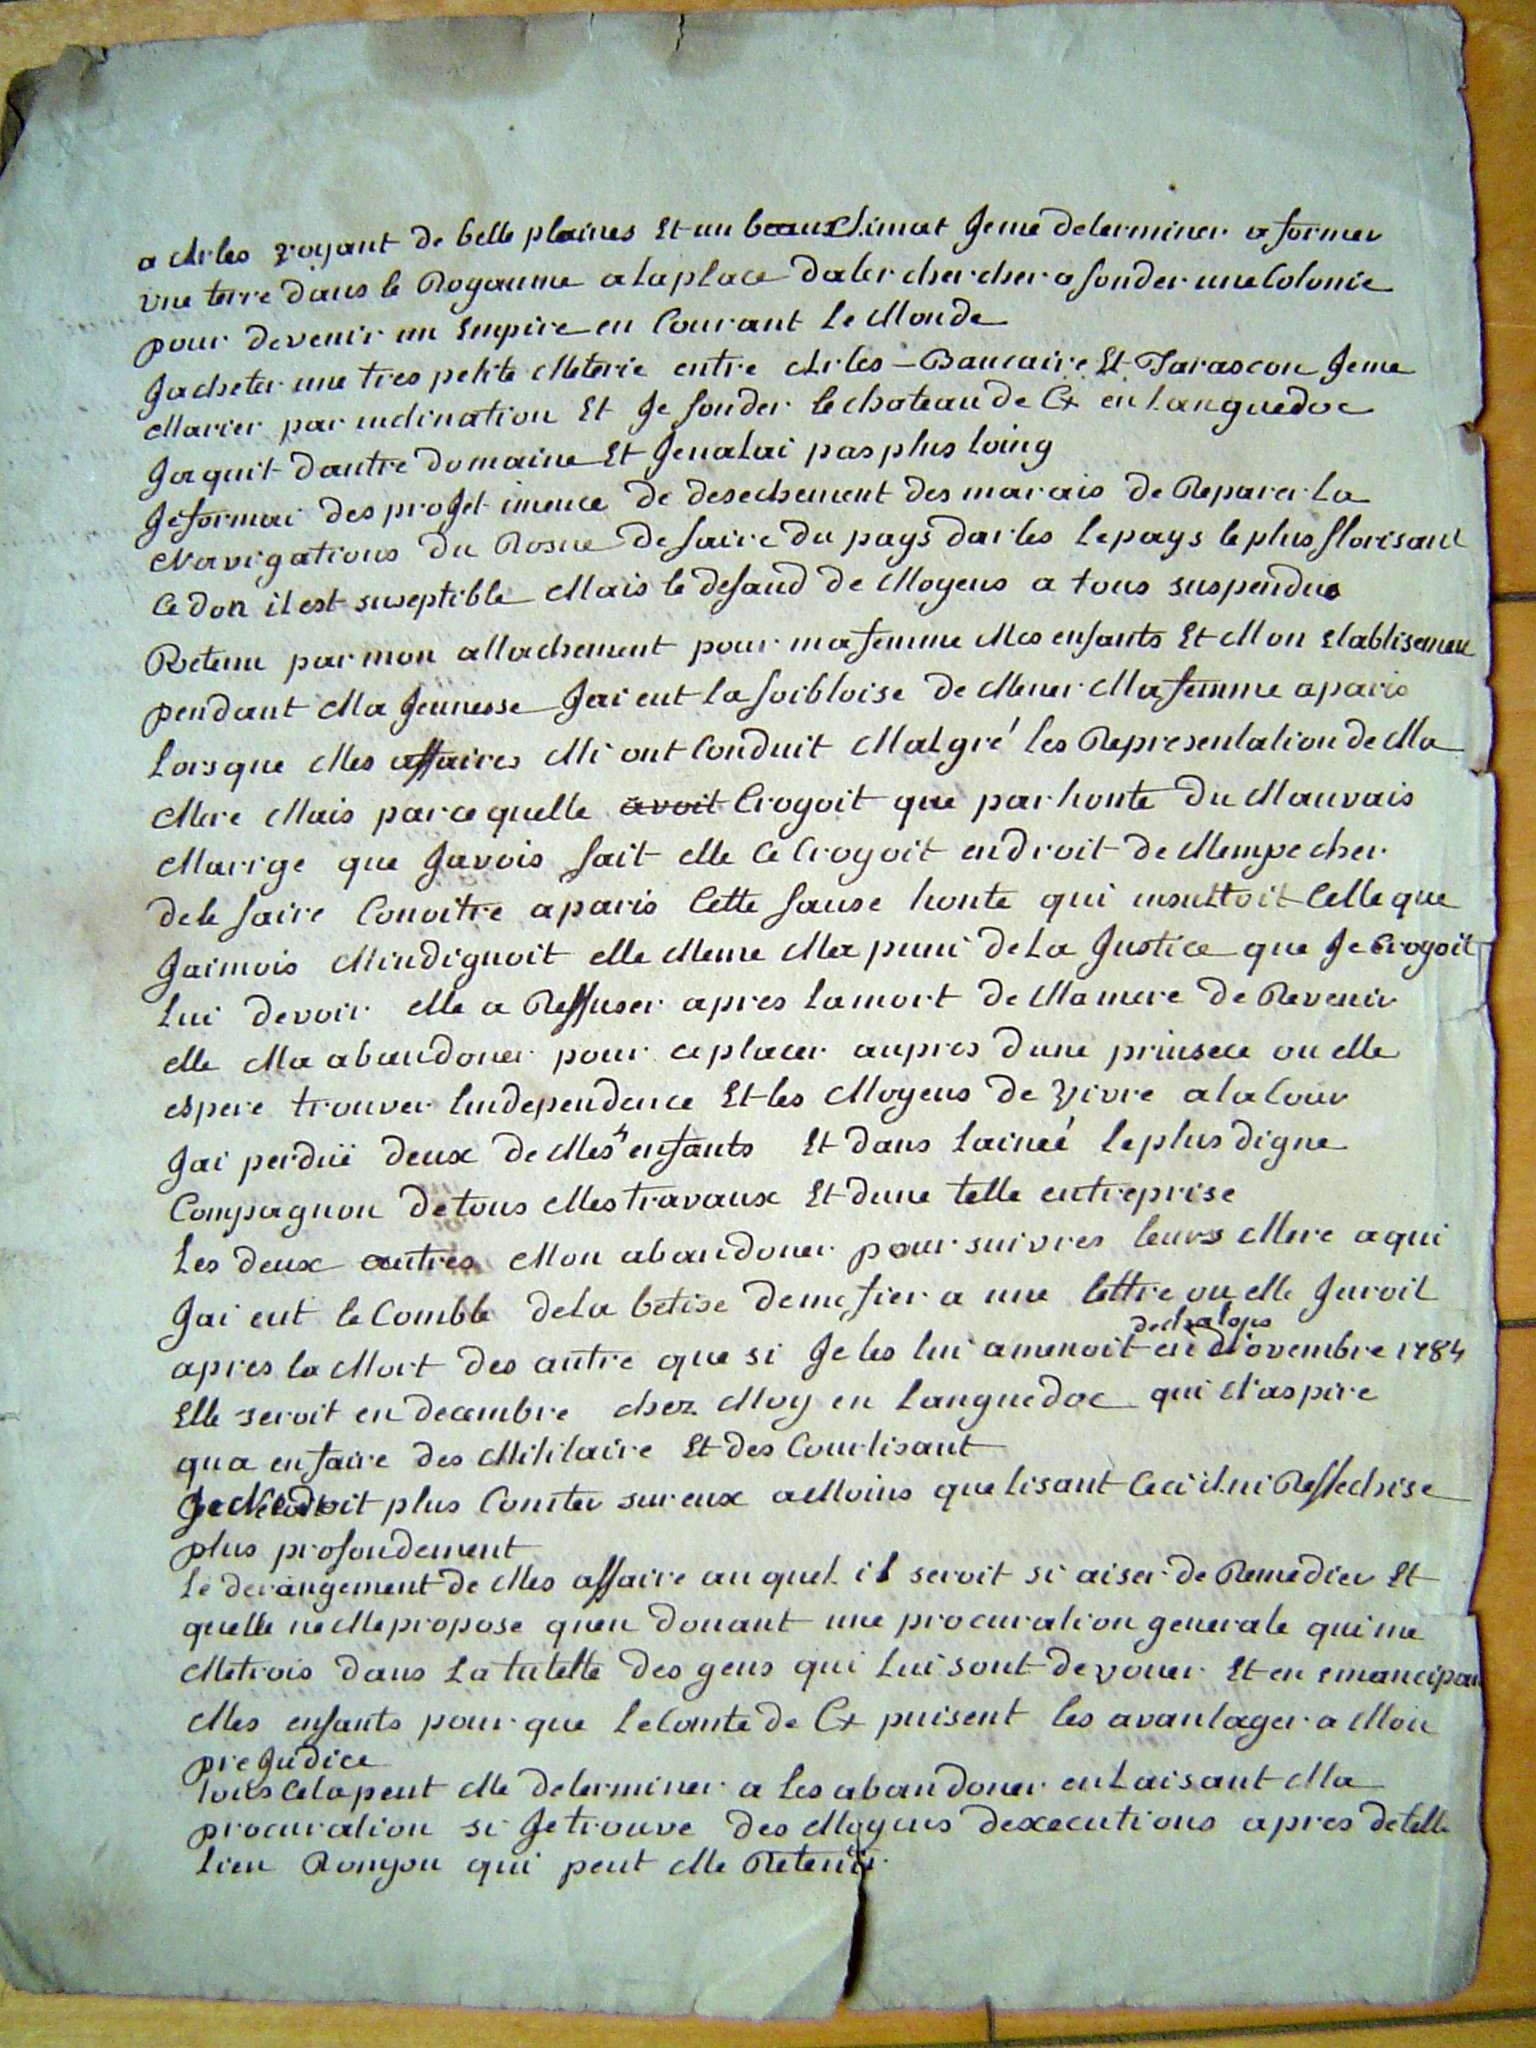 a Arles voyant de belle plaines Et un beaux Climat Je me determiner a former
une terre dans le Royaume a la place daler chercher a fonder une Colonie
pour devenir un Empire en Courant Le Monde
Jacheter une tres petite Meterie entre Arles - Baucaire Et Tarascon Je me
Marier par inclination Et Je fonder le chateau de C+ en Languedoc
Jaquit dautre domaine Et Jenalai pas plus Loing
Je formai des projet imence de desechement des marais de Reparer La
Navigations du Rosne de faire du pays darles le pays le plus florisant
Ce don il est suseptible Mais le defaud de Moyens a tous suspendus
Retenu par mon attachement pour ma femme Mes enfants Et Mon Etablisement
pendant Ma Jeunesse Jai eut la foibloise de Mener Ma femme a paris
Lorsque Mes affaires Mi ont Conduit Malgré les Representation de Ma
Mere Mais parce quelle avoit Croyoit que par honte du Mauvais
Marrge que Javois fait elle Ce Croyoit en droit de Mempecher
de le faire Conoitre a paris Cette fause honte qui insultoit Celle que
Jaimois Mindignoit elle Meme Ma puni de La Justice que Je Croyoit
Lui devoir elle a Reffuser apres La mort de Ma mere de Revenir
elle Ma abandoner pour ce placer aupres dune prinsece ou elle
espere trouver Lindependence Et les Moyens de Vivre a la Cour
Jai perduë deux de Mes 4 enfants Et dans Lainée le plus digne
Compagnon de tous Mes travaux Et dune telle entreprise
Les deux autres Mon abandoner pour suivres leurs Mere a qui
Jai eut le Comble de La betise de me fier a une lettre ou elle Juroit
de chalops
apres la Mort des autre que si Je les lui amenoit en Novembre 1784
Elle seroit en decembre chez Moy en Languedoc qui N'aspire
qua en faire des Militaire Et des Courtisant
Je Ne doit plus Comter sur eux a Moins que lisant Ceci il ni Reflechise
plus profondement
Le derangement de Mes affaire au quel il seroit si aiser de Remedier Et
quelle ne Me propose quen donant une procuration generale qui me
Metrois dans La tutelle des gens qui Lui sont devouer Et en emancipan
Mes enfants pour que Le Comte de C+ puisent les avantager a Mon
prejudice
tous Cela peut Me determiner a les abandoner en Laisant Ma
procuration si Je trouve des Moyens dexecutions apres de telle
Lien Rompu qui peut Me Retenir